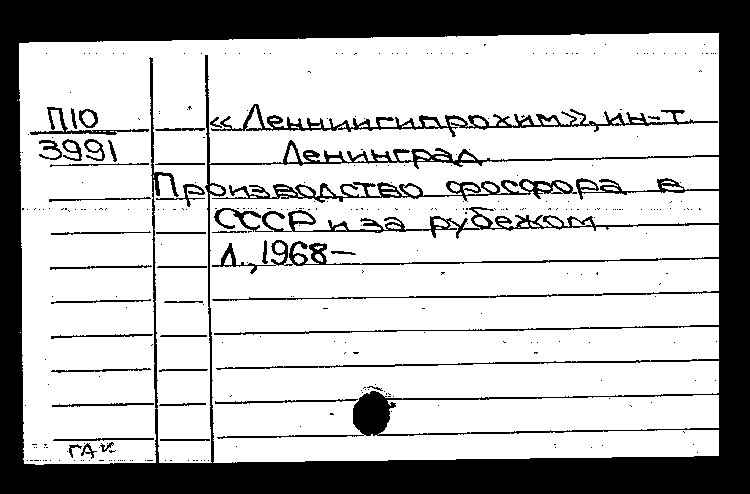 П10
3991
«Ленниигипрохим», ин-т.
Ленинград.
Производство фосфора в
СССР и за рубежом.
Л., 1968—
ГАК